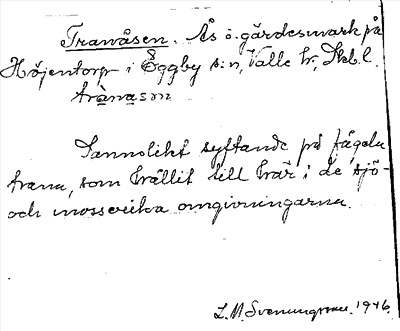 Tranåsen. Ås ö. gärdesmark på
Höjentorp i Eggby s:n, Valle hr, Skb. l.
trànasʒn
Sannolikt syftande på fågeln
trana, som hållit till här i de sjö-
och mosserika omgivningarna.
L. M. Svenungsson. 1946.